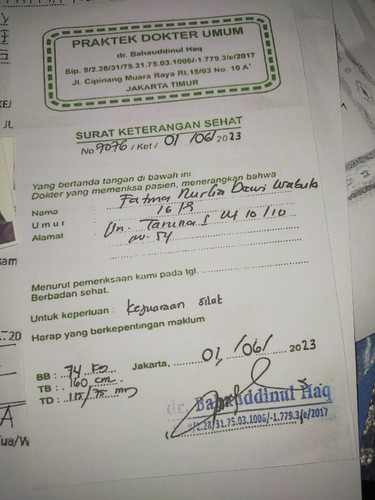 PRAKTEK DOKTER UMUM
dr. Bahauddinul Haq
Sip. 9/2.28/31/75.31.75.03.1006/-1.779.3/e/2017
Jl. Cipinang Muara Raya Rt.15/03 No. 10 A'
JAKARTA TIMUR
SURAT KETERANGAN SEHAT
No. 9076 / Ket / 01 /06/ 2023
Yang bertanda tangan di bawah ini
Dokter yang memeriksa pasien, menerangkan bahwa
Nama : Fatma Nurlia Dewi
Umur : 16
Alamat : Taruna I 10/10
no. 54
Menurut pemeriksaan kami pada tgl.
Berbadan sehat.
Untuk keperluan : Kejuaraan silat
Harap yang berkepentingan maklum
Jakarta, 01, /06/ 2023
BB : 74 kg
TB : 160 cm
TD : 115/75 mm
dr. Bahauddinul Haq
9/2.28/31.75.03.1006/-1.779.3/e/2017